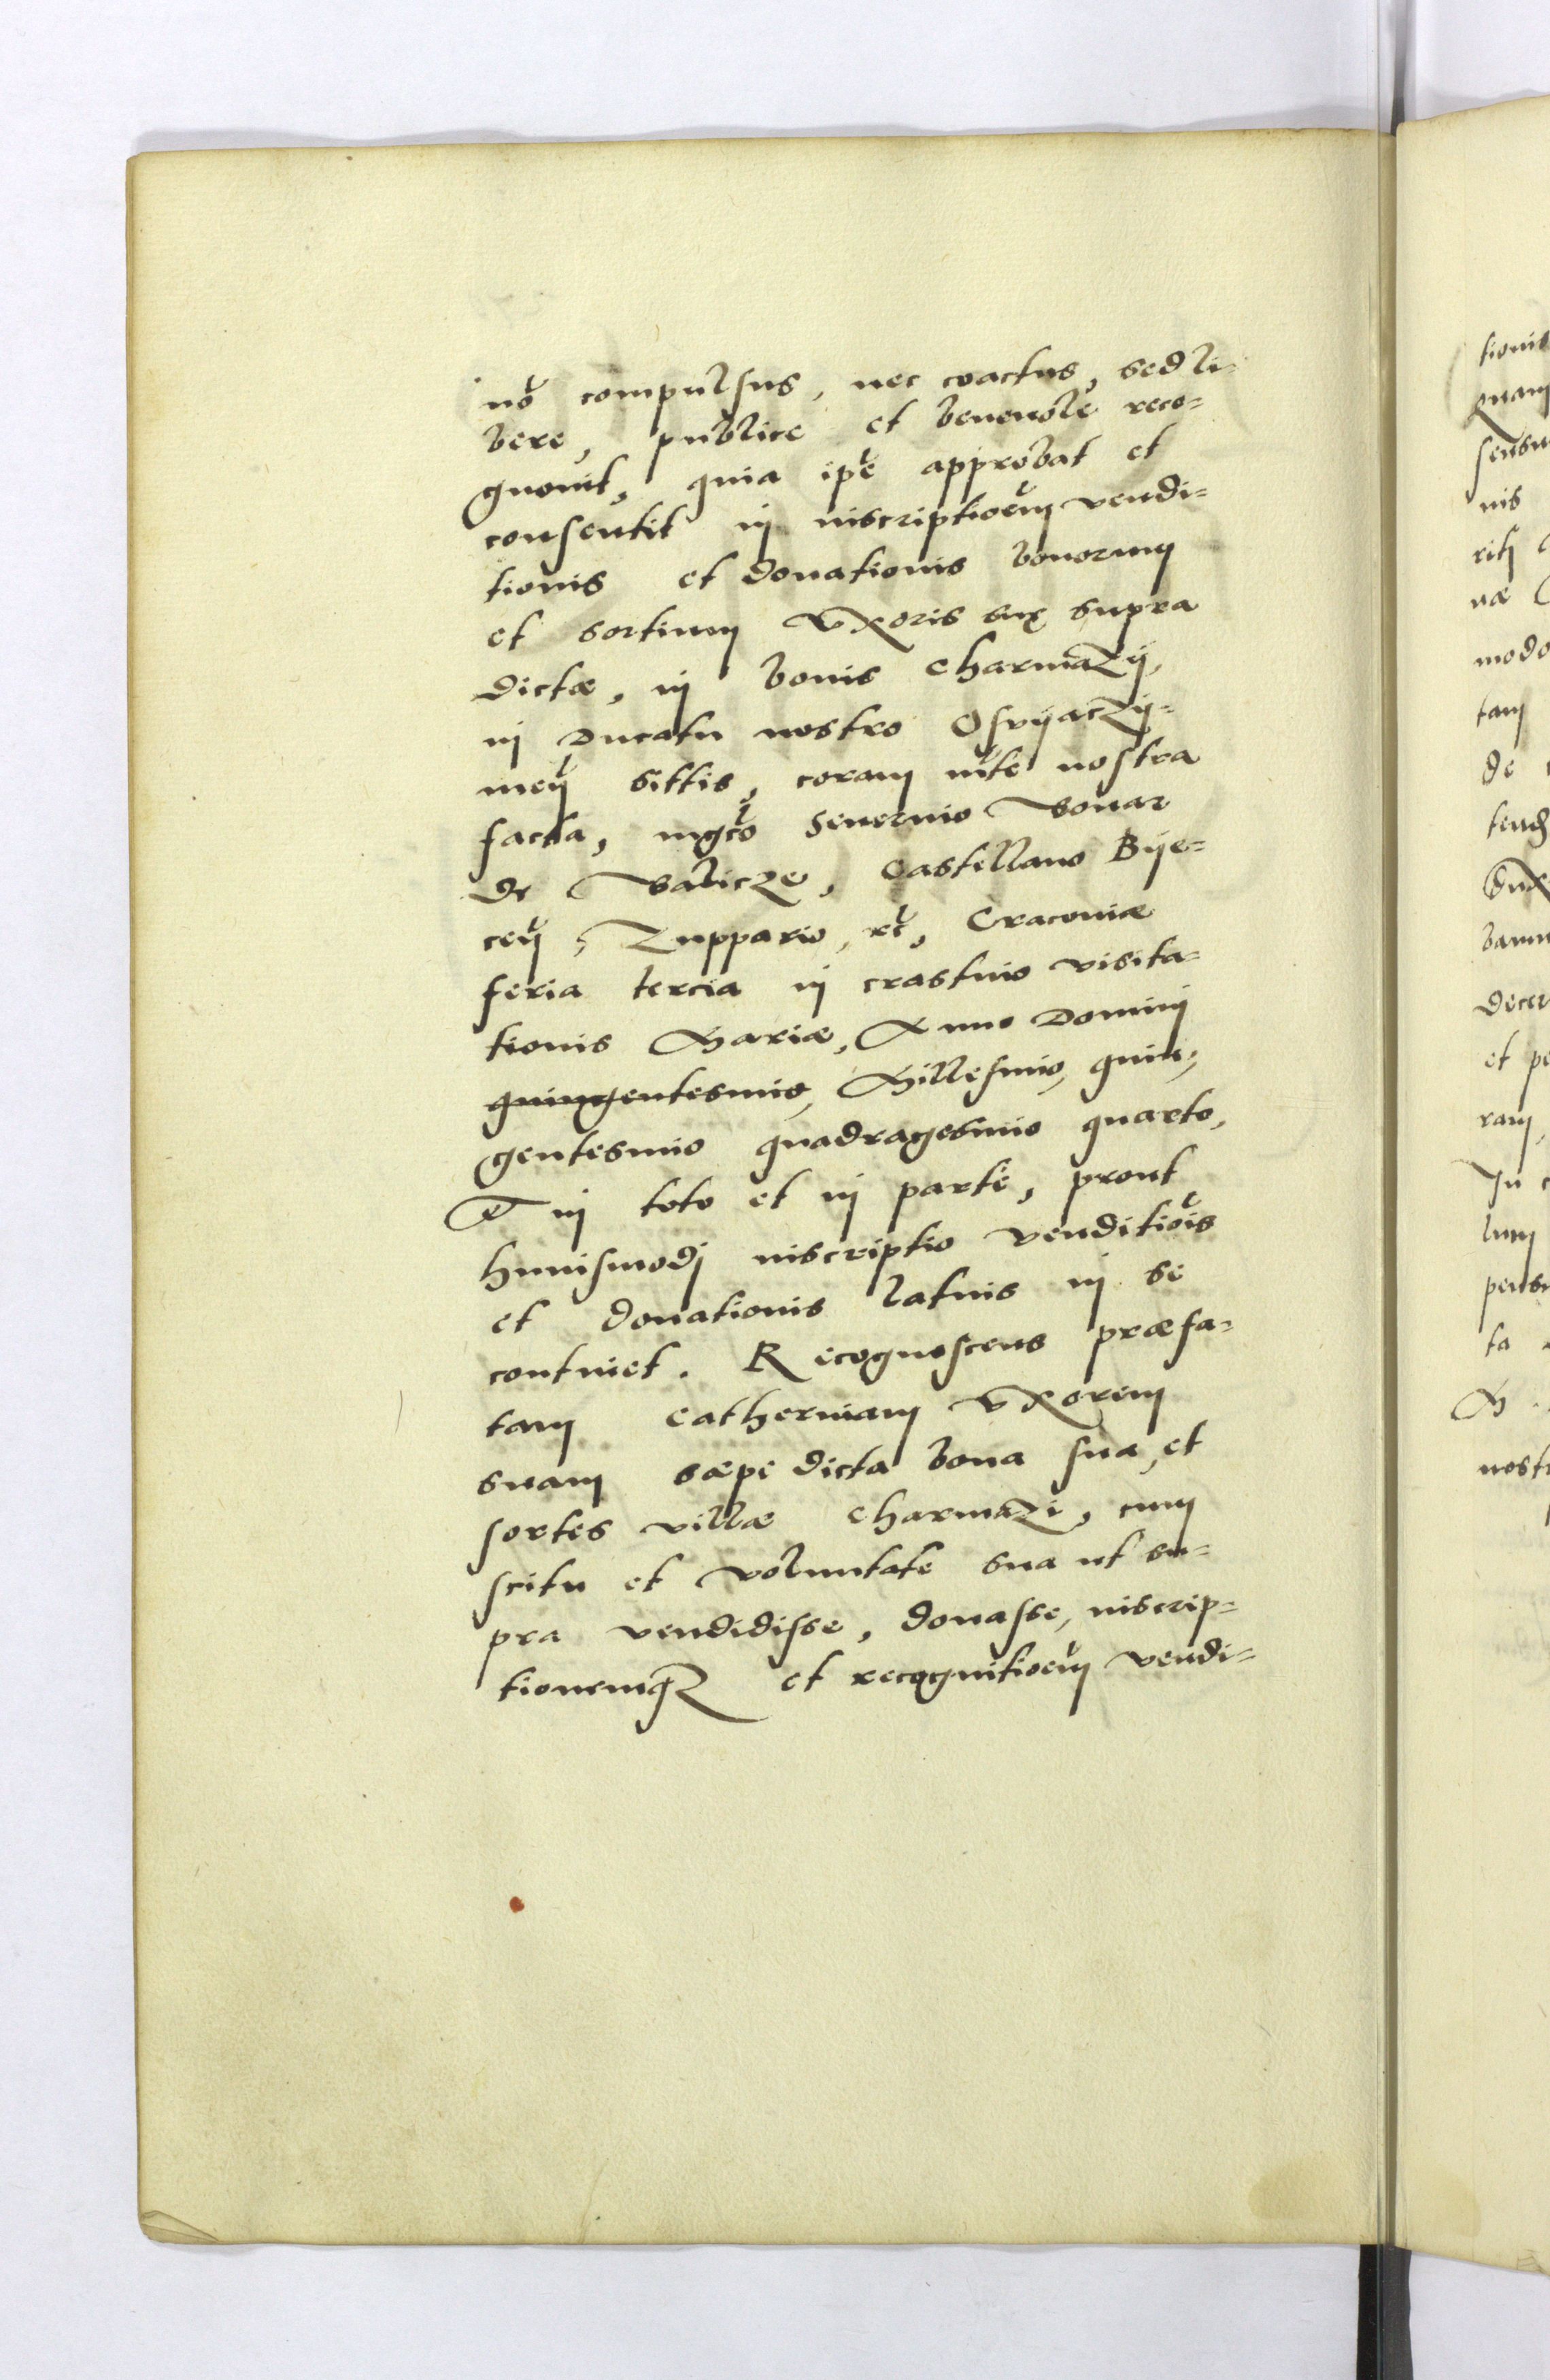 nõ compulsus, nec coactus, sed li-
bere, publice et beneuole reco=
gnouit, quia ip̃e approbat et
consentit in inscriptioẽm vendi=
tionis et donationis bonorum
et sortium vxoris suę supra
dictæ, in bonis Charmazij,
in Ducatu nostro Osvijaczÿ=
meñ sittis, coram m̃te nostra
facta, mgc̃o Seuerino Bonar
de Balicze, Castellano Bije=
ceñ, Zuppario, ec̃, Cracouiæ
feria tercia in crastino visita=
tionis Mariæ, Anno Domini
quingentesimo, Millesimo, quin,
gentesimo quadragesimo quarto,
Et in toto et in parte, prout
huiusmodj inscriptio venditiõis
et donationis latius in se
continet. Recognoscens præfa=
tam Catherinam vxorem
suam sæpe dicta bona sua, et
sortes villæ Charmazi, cum
scitu et voluntate sua ut su=
pra vendidisse, donasse, inscrip=
tionemq₃ et recognitioẽm vendi=
tionis
quam
nis
ritj
næ
modo
tam
de
et pe
ram,
In c
lum
ta
M.
nost